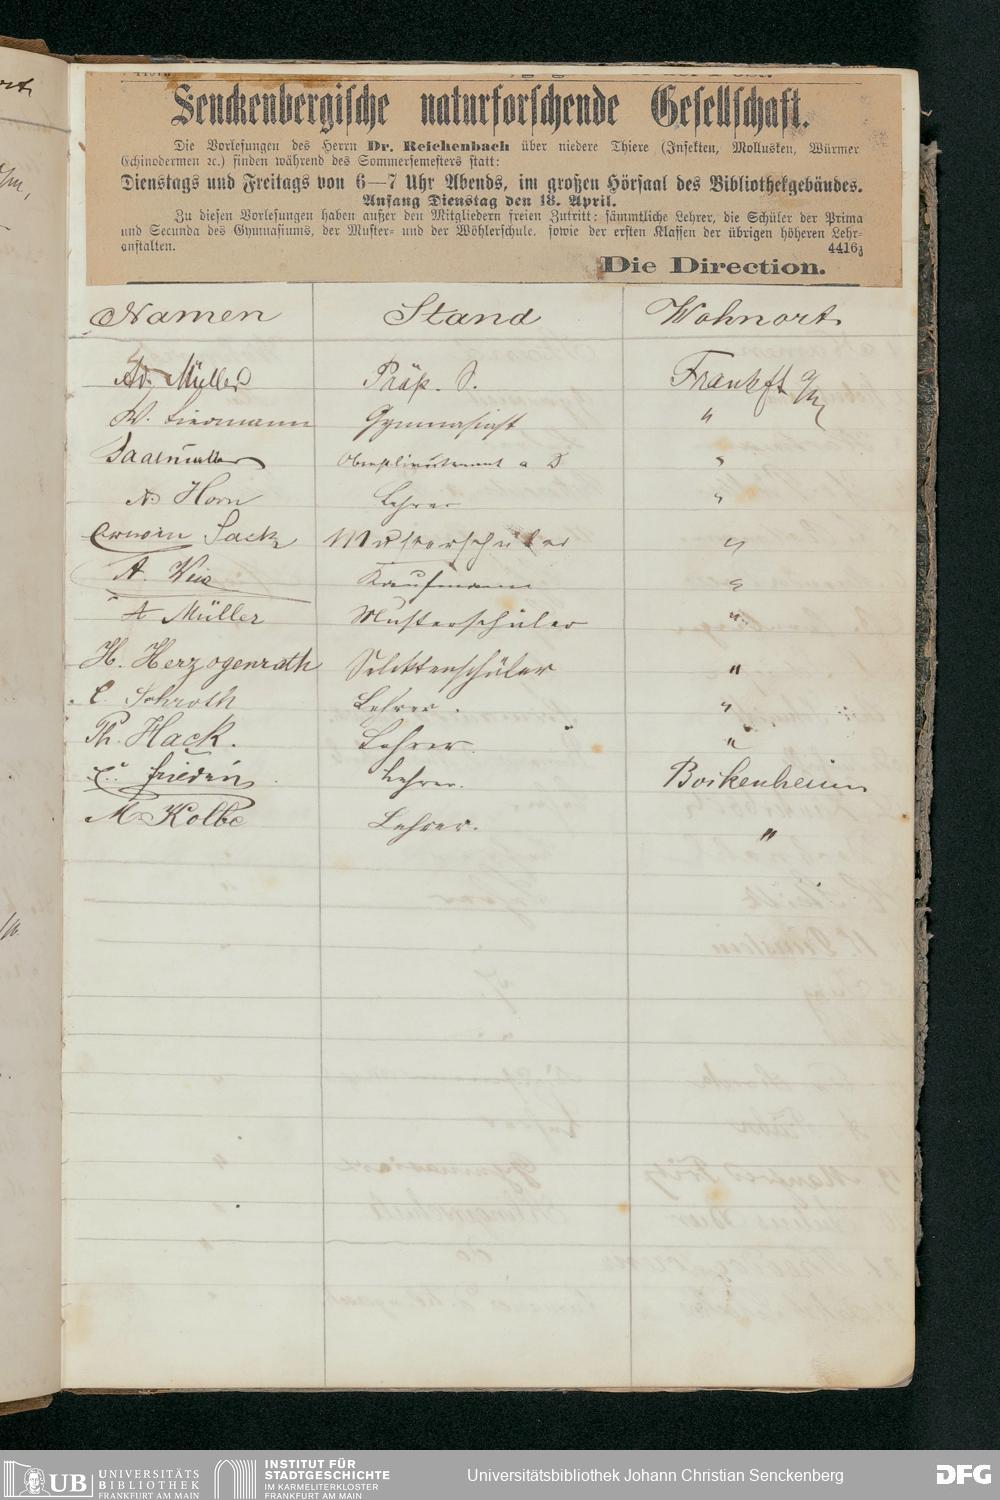 Senckenbergische naturforschende Gesellschaft.
Die Vorlesungen des Herrn Dr. Reichenbach über niedere Thiere (Insekten, Mollusken, Würmer
Echinodermen ꝛc.) finden während des Sommersemesters statt:
Dienstags und Freitags von 6—7 Uhr Abends, im großen Hörsaal des Bibliothekgebäudes.
Anfang Dienstag den 18. April.
Zu diesen Vorlesungen haben außer den Mitgliedern freien Zutritt: sämmtliche Lehrer, die Schüler der Prima
und Secunda des Gymnasiums, der Muster- und der Wöhlerschule. sowie der ersten Klassen der übrigen höheren Lehr-
anstalten. 4416
Die Direction.
Namen Stand Wohnort
Ad. Müller Präp. S. Frankft a/M
W. Liermann Gymnasiast "
Saalmüller Oberstlieutenant a D "
A. Horn Lehrer "
Sack Musterschüler "
A. Weis Kaufmann "
A Müller Musterschüler "
H. Herzogenrath Selektenschüler "
C. Schroth Lehrer. "
Ph. Hack. Lehrer. "
Lehrer. Bockenheim
M Kolbe Lehrer. "
UB UNIVERSITÄTS
BIBLIOTHEK
FRANKFURT AM MAIN
INSTITUT FÜR
STADTGESCHICHTE
IM KARMELITERKLOSTER
FRANKFURT AM MAIN
Universitätsbibliothek Johann Christian Senckenberg
DFG